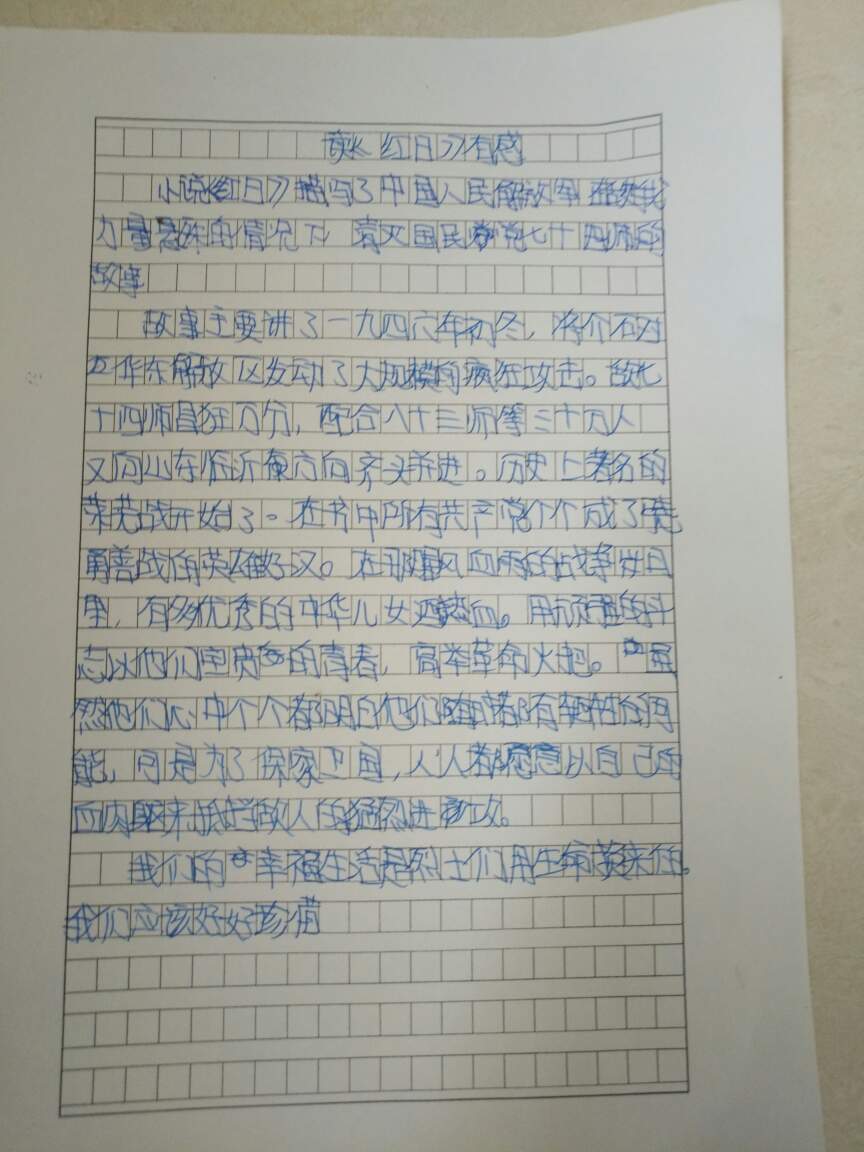 读《红日》有感
小说《红日》描写了中国人民解放军在敌我
力量悬殊的情况下,歼灭国民党七十四师的
故事
故事主要讲了一九四六年初冬,蒋介石对
华东解放区发动了大规模的疯狂攻击。敌七
十四师昌狂万分,配合八十三师等三十万人
又向山东临沂方向齐头并进。历史上著名的
莱芜战开始了。在书中所有共产党个个成了
勇善战的英雄好汉。在那腥风血雨的战争岁月
里,有多优秀的中华儿女洒热血。用顽强的斗
志以他们宝贵的青春,高举革命火把。虽
然他们心中个个都明白他们随时都有牺牲的可
能,可是为了保家卫国,人人都愿意以自己的
血肉躯来抵拦敌人的猛烈进攻。
我们的幸福生活是烈士们用生命换来的。
我们应该好好珍惜